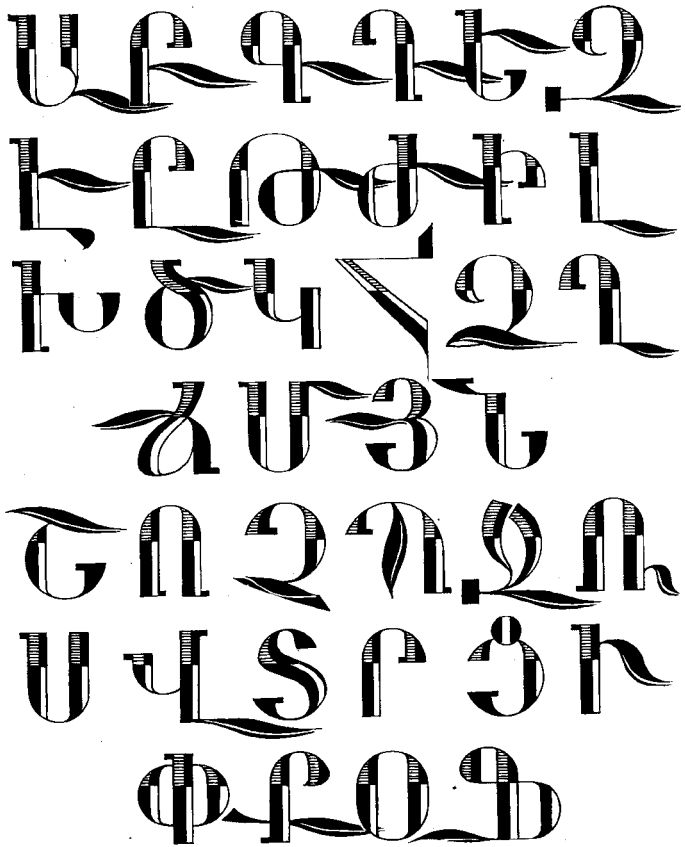 ԱԲԳԴԵԶ
ԷԸԹԺԻԼ
ԽԾԿՀՁՂ
ՃՄՅՆ
ՇՈՉՊՋՌ
ՍՎՏՐՑՒ
ՓՔՕՖ